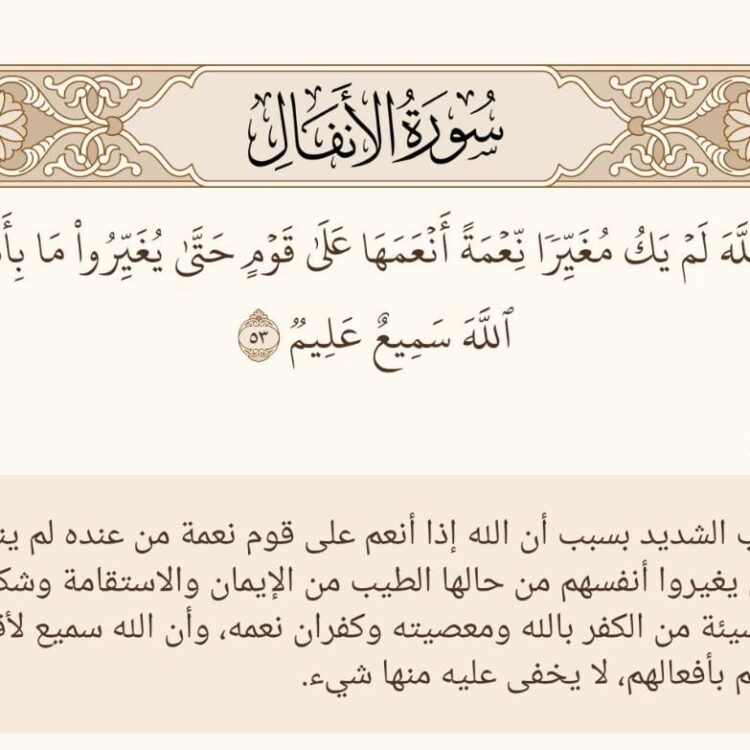 سُورَةُ الأَنفَالِ
لَمۡ يَكُ مُغَيِّرٗا نِّعۡمَةً أَنۡعَمَهَا عَلَىٰ قَوۡمٍ حَتَّىٰ يُغَيِّرُواْ مَا
ٱللَّهَ سَمِيعٌ عَلِيمٞ ٥٣
الشديد بسبب أن الله إذا أنعم على قوم نعمة من عنده لم
يغيروا أنفسهم من حالها الطيب من الإيمان والاستقامة
من الكفر بالله ومعصيته وكفران نعمه، وأن الله سميع
بأفعالهم، لا يخفى عليه منها شيء.